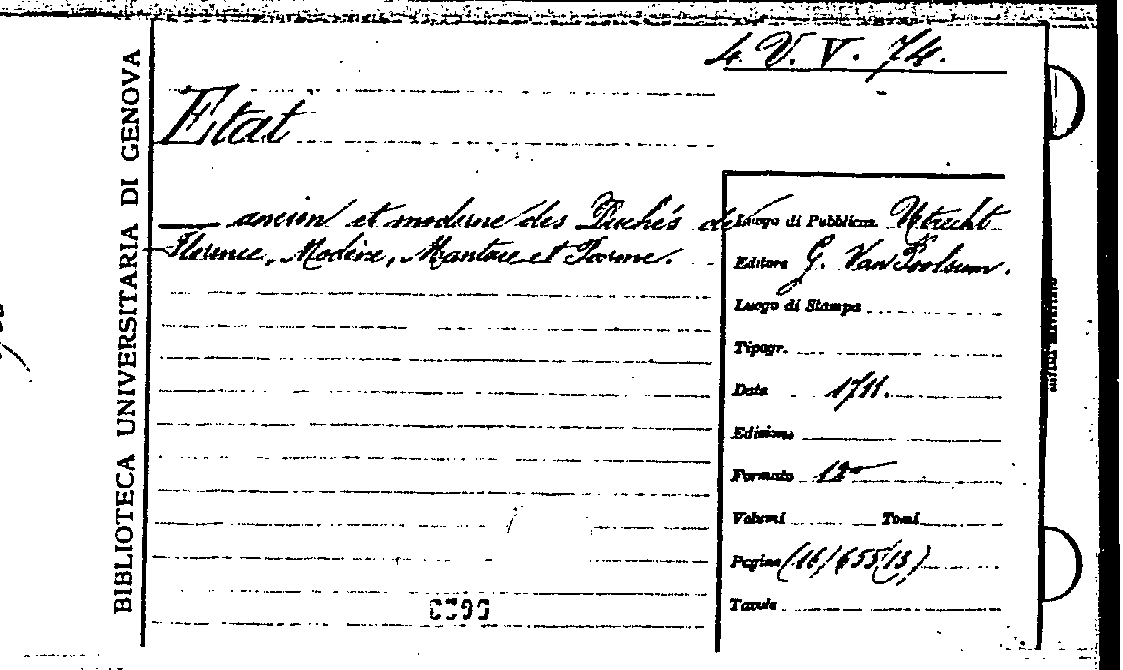 4. V. V. 74.
Etat
— ancien et moderne des Duchés de
Florence, Modène, Mantoue et Parme.
BIBLIOTECA UNIVERSITARIA DI GENOVA
Luogo di Pubblicaz. Utrecht
Editore G. Van Poolsum.
Luogo di Stampa
Tipogr.
Data 1711.
Edizione
Formato 12°
Volumi Tomi
Pagine (16/655/13)
Tavole